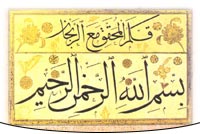 قلم المحقق مع الريحان
بسم الله الرحمن الرحيم